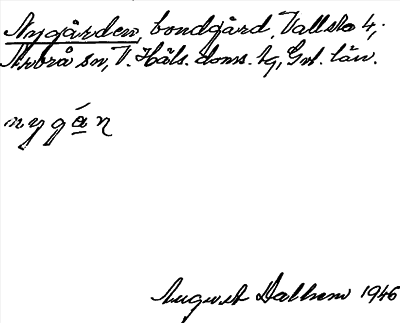 Nygården, bondgård, Vallsta 4,
Arbrå sn, V. Häls. doms. hg, Gvl. län.
nygá̱ɳ
August Dalhem 1946